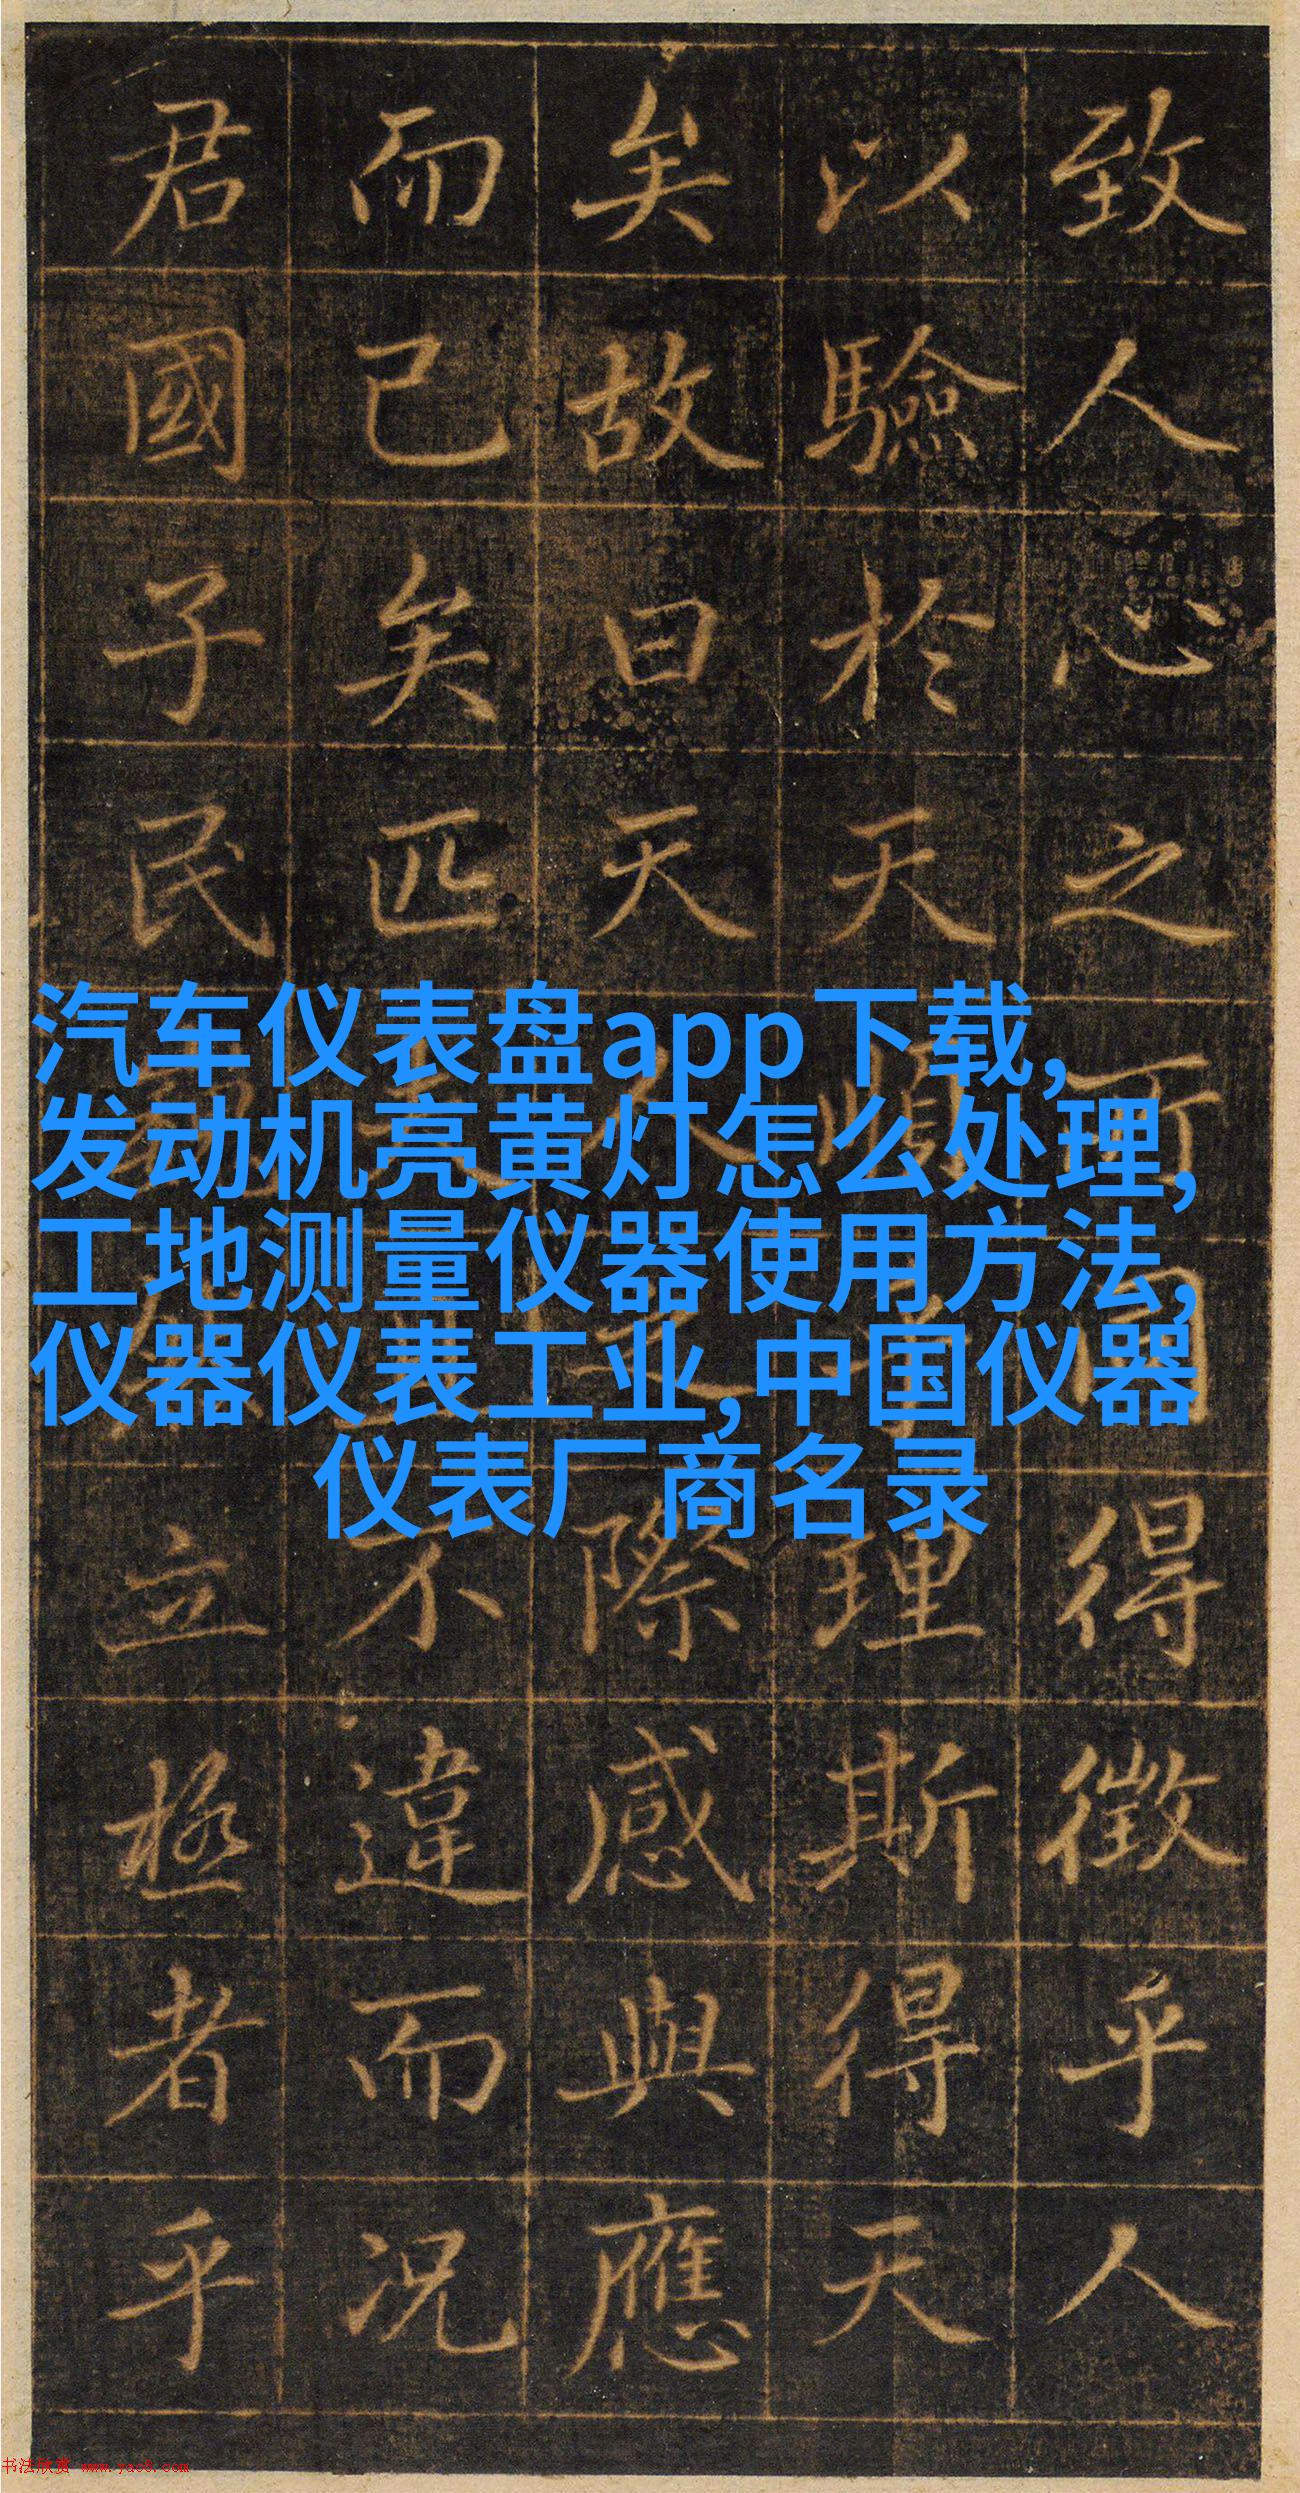 致人心之所同得徵乎人
以驗於天順理斯得天
矣故曰天人之際感與應
而已矣匹夫不違而况
君國子民立極者乎
汽车仪表盘app下载,
发动机亮黄灯怎么处理,
工地测量仪器使用方法,
仪器仪表工业,中国仪器
仪表厂商名录
书法欣赏 www.yac8.com